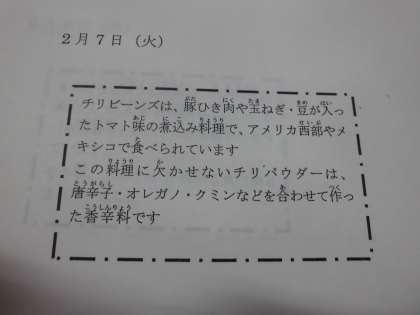 2月7日（火）
チリビーンズは、豚ひき肉や玉ねぎ・豆が入っ
たトマト味の煮込み料理で、アメリカ西部やメ
キシコで食べられています
この料理に欠かせないチリパウダーは、
唐辛子・オレガノ・クミンなどを合わせて作っ
た香辛料です